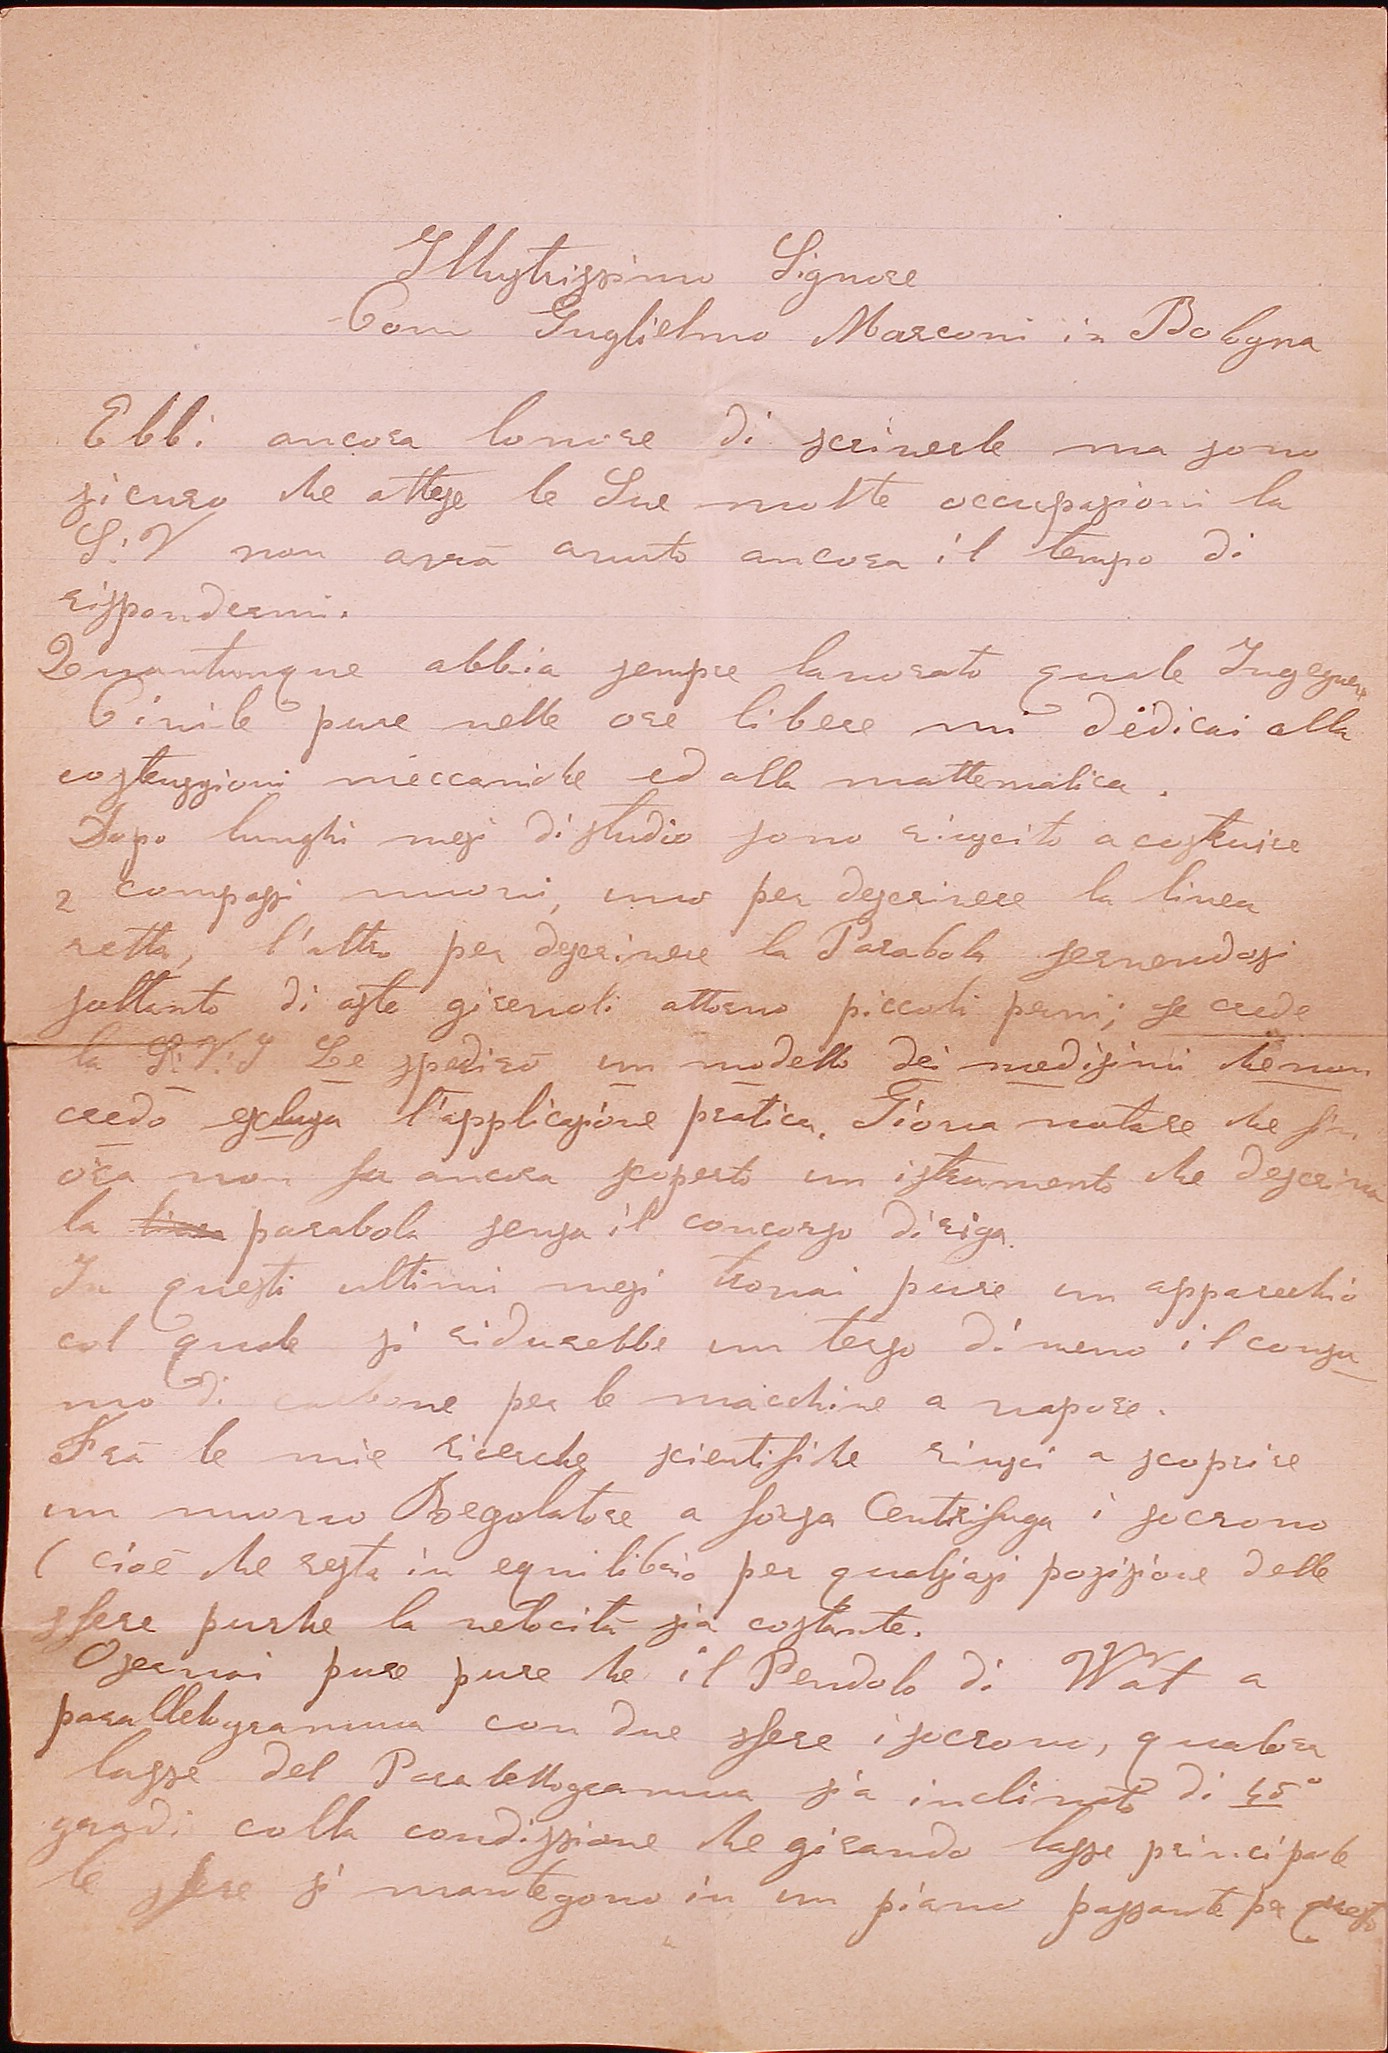 Illustrissimo Signore
Com Guglielmo Marconi in Bologna
Ebbi ancora lonore di scriverle ma sono
sicuro che attese le Sue molte occupazioni la
S:V non avrà avuto ancora il tempo di
rispondermi.
Quantunque abbia sempre lavorato quale Ingegnere
Civile pure nelle ore libere mi dedicai alla
costruzzioni meccaniche ed alla mattematica.
Dopo lunghi mesi di studio sono riuscito a costruire
2 compassi nuovi, uno per descrivere la linea
retta, l'altro per descrivere la Parabola servendosi
soltanto di aste girevoli attorno piccoli perni; se crede
la S:V:I Le spedirò un modello dei medesimi che non
credo escluso l'applicazione pratica. Giova notare che fin
ora non fu ancora scoperto un istrumento che descriva
la linea parabola senza il concorso di riga.
In questi ultimi mesi trovai pure un apparechio
col quale si ridurebbe un terzo di meno il consu
mo di carbone per le macchine a vapore.
Frà le mie ricerche scientifiche riusci a scoprire
un nuovo Regolatore a forza Centrifuga i socrono
( cioè che resta in equilibrio per qualsiasi posizione delle
sfere purche la velocità sia costante.
Oservai pure pure che il Pendolo di Wat a
parallelogramma con due sfere isocrono, qualora
lasse del Paralellogramma sia inclinato di 45°
gradi colla condizzione che girando lasse principale
le sfere si mantegono in un piano passante per questo